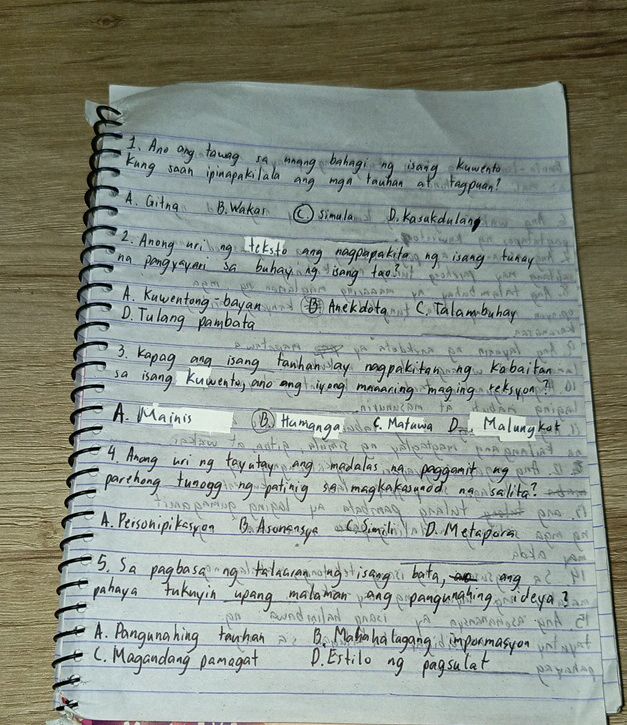 1. Ano ang tawag sa unang bahagi ng isang kuwento
kung saan ipinapakilala ang mga tauhan at tagpuan?
A. Gitna B. Wakas C. Simula D. Kasukdulan
2. Anong uri ng teksto ang nagpapakita ng isang tunay
na pangyayari sa buhay ng isang tao?
A. Kuwentong-bayan B. Anekdota C. Talambuhay
D. Tulang pambata
3. Kapag ang isang tauhan ay nagpakitan ng kabaitan
sa isang kuwento, ano ang iyong maaaring maging reaksyon?
A. Mainis B. Humanga C. Matuwa D. Malungkot
4 Anong uri ng tayutay ang madalas na paggamit ng
parehong tunogg ng patinig sa magkakasunod na salita?
A. Personipikasyon B. Asonansya C. Simili D. Metapora
5. Sa pagbasa ng talaarawan ng isang bata, ang
pahaya tukuyin upang malaman ang pangunahing ideya?
A. Pangunahing tauhan B. Mahahalagang impormasyon
C. Magandang pamagat D. Estilo ng pagsulat